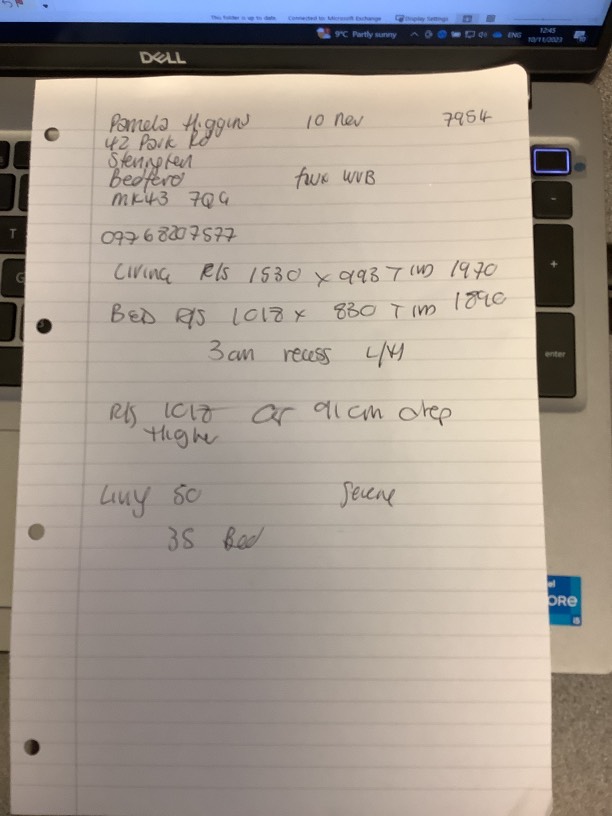 This folder is up to date Connected to: Microsoft Exchange Display Settings
9°C Partly sunny ENG 12:45
10/11/2023
DELL
Pamela Higgins 10 Nov 7954
42 Park Rd
Bedford
MK43 7QG
Living R/S 1530 x 993 T 1970
BED R/S 1018 x 830 T 1890
3cm recess L/H
R/S 1018 or 91cm drop
Higher
50
35 Bed
enter
CORE
i5